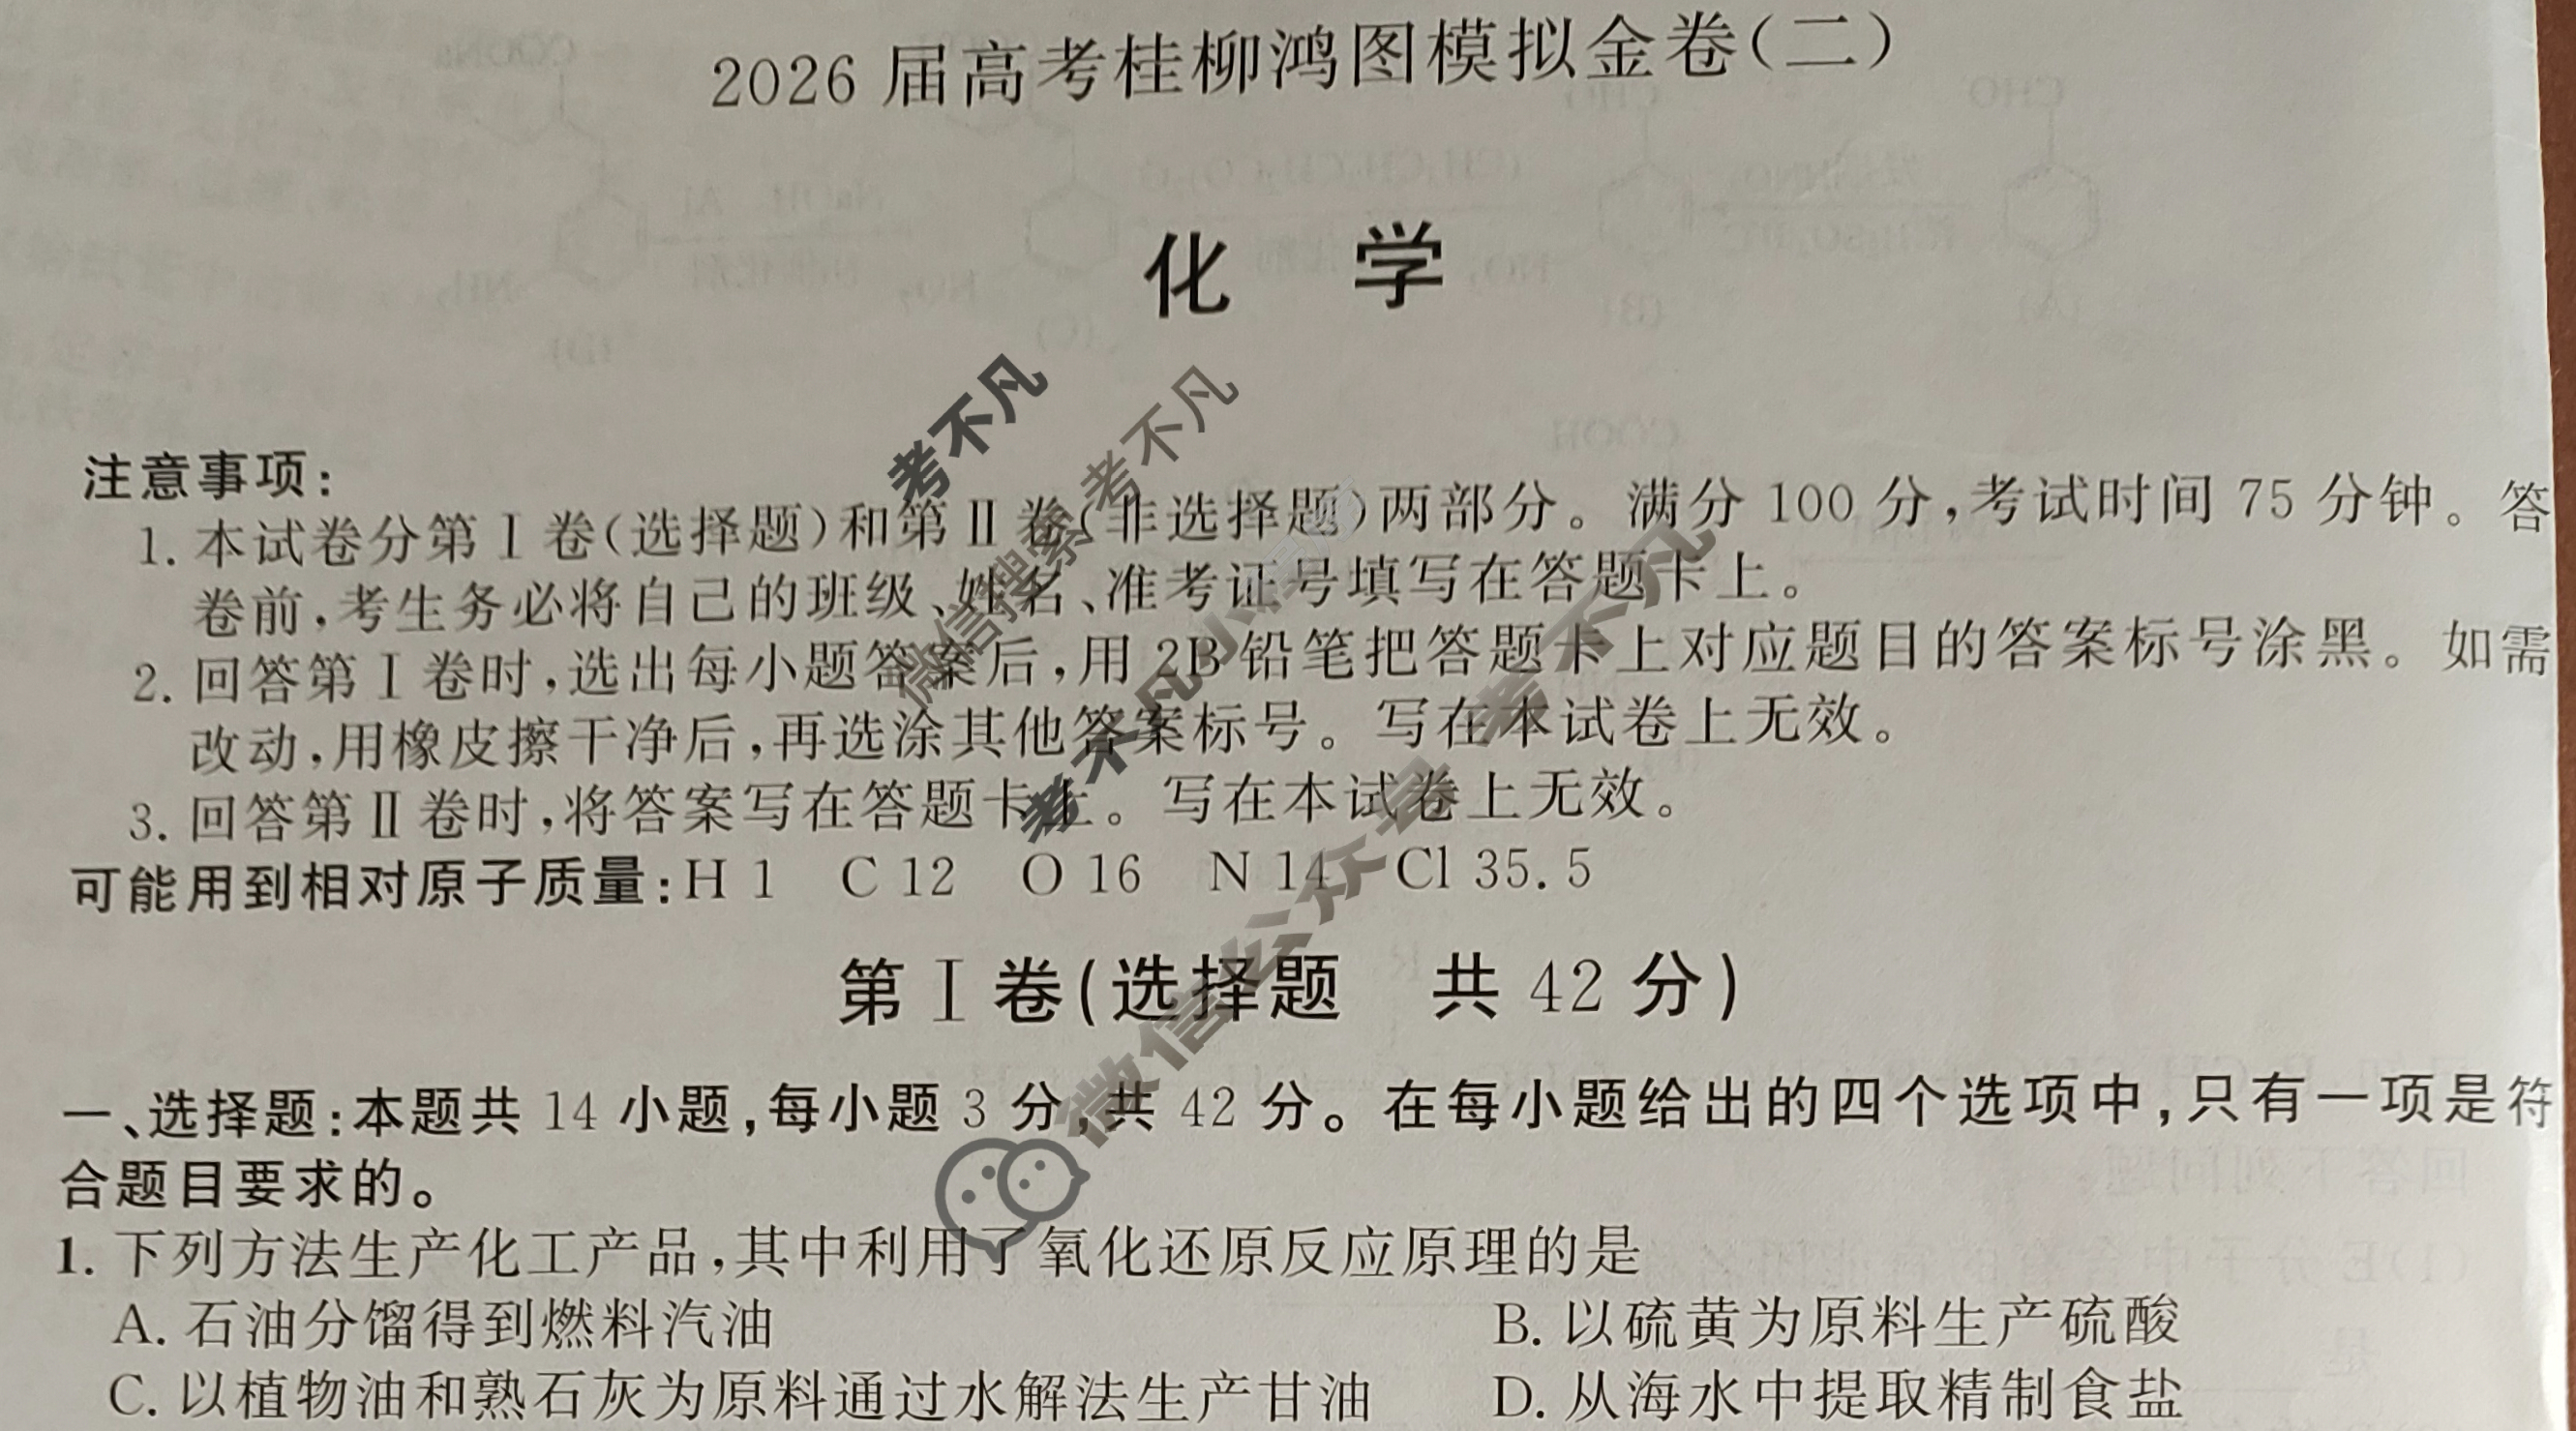 2026 届高考桂柳鸿图模拟金卷(二)
化 学
注意事项:
1. 本试卷分第Ⅰ卷(选择题)和第Ⅱ卷(非选择题)两部分。满分 100 分,考试时间 75 分钟。答
卷前,考生务必将自己的班级、姓名、准考证号填写在答题卡上。
2. 回答第Ⅰ卷时,选出每小题答案后,用 2B 铅笔把答题卡上对应题目的答案标号涂黑。如需
改动,用橡皮擦干净后,再选涂其他答案标号。写在本试卷上无效。
3. 回答第Ⅱ卷时,将答案写在答题卡上。写在本试卷上无效。
可能用到相对原子质量:H 1 C 12 O 16 N 14 Cl 35.5
第Ⅰ卷(选择题 共 42 分)
一、选择题:本题共 14 小题,每小题 3 分,共 42 分。在每小题给出的四个选项中,只有一项是符
合题目要求的。
1. 下列方法生产化工产品,其中利用了氧化还原反应原理的是
A. 石油分馏得到燃料汽油 B. 以硫黄为原料生产硫酸
C. 以植物油和熟石灰为原料通过水解法生产甘油 D. 从海水中提取精制食盐
考不凡
微信搜索 考不凡
考不凡小程序
微信公众号 考不凡